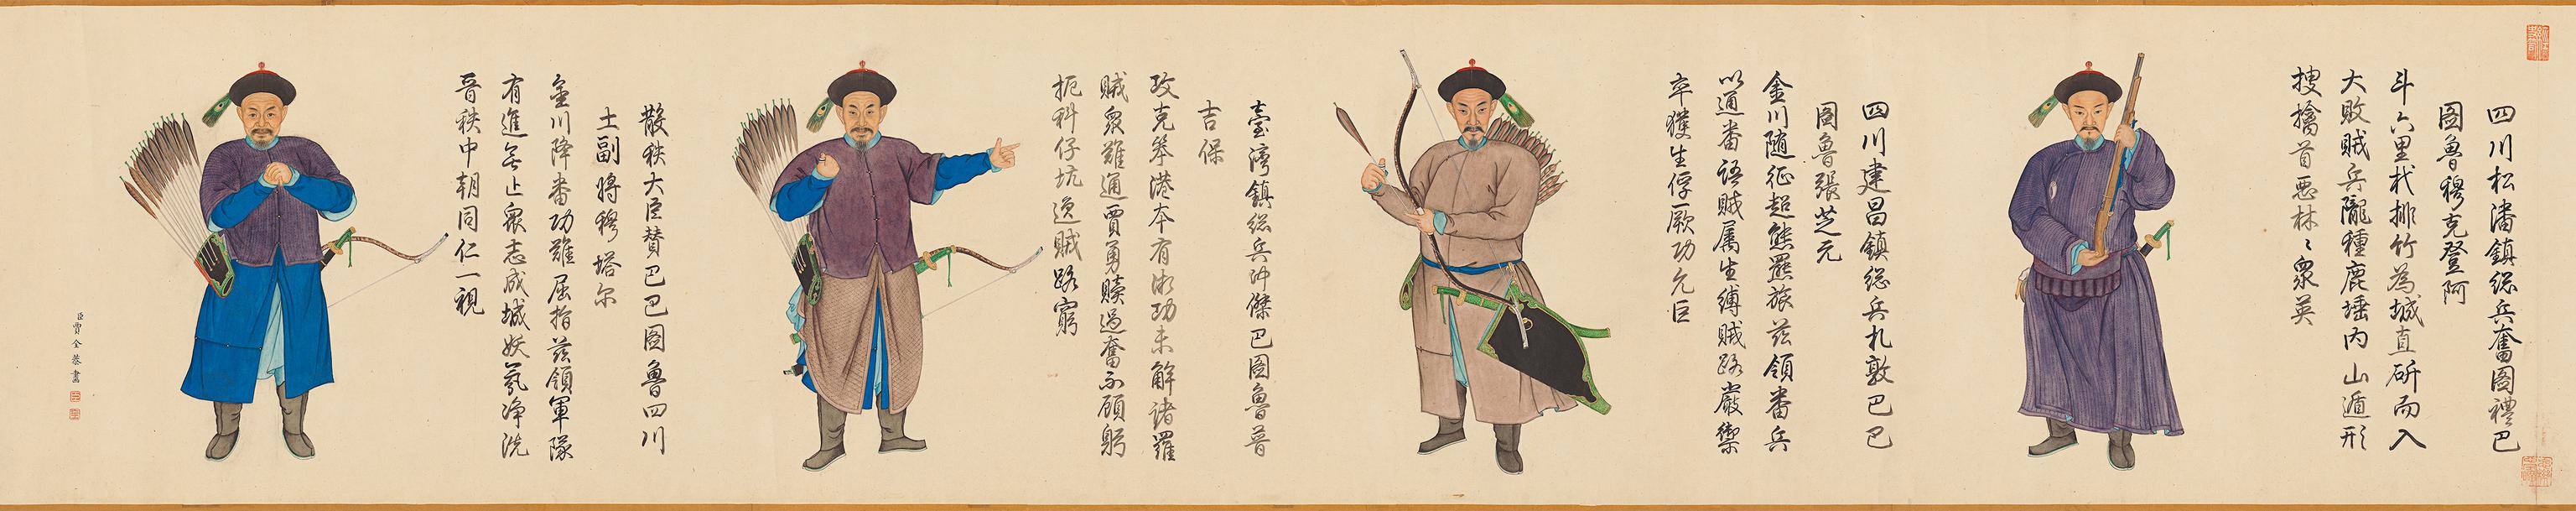 四川松潘鎮総兵奮圖禮巴
圖魯穆克登阿
斗六里栰排竹為城直斫而入
大敗賊兵隴種鹿埵內山遁形
搜擒首惡林〻衆英
四川建昌鎮総兵札敦巴巴
圖魯張芝元
金川隨征超熊羆旅茲領番兵
以通番語賊屬生縛賊路嚴禦
卒獲生俘厥功允巨
臺灣鎮総兵沖傑巴圖魯普
吉保
攻克笨港本有微功未解諸羅
賊衆難通賈勇贖過奮不顧躬
扼科仔坑逸賊路窮
散秩大臣贊巴巴圖魯四川
土副將穆塔尔
金川降番功難屈指茲領軍隊
有進無止衆志成城妖氛淨洗
晉秩中朝同仁一視
臣賈全恭畫